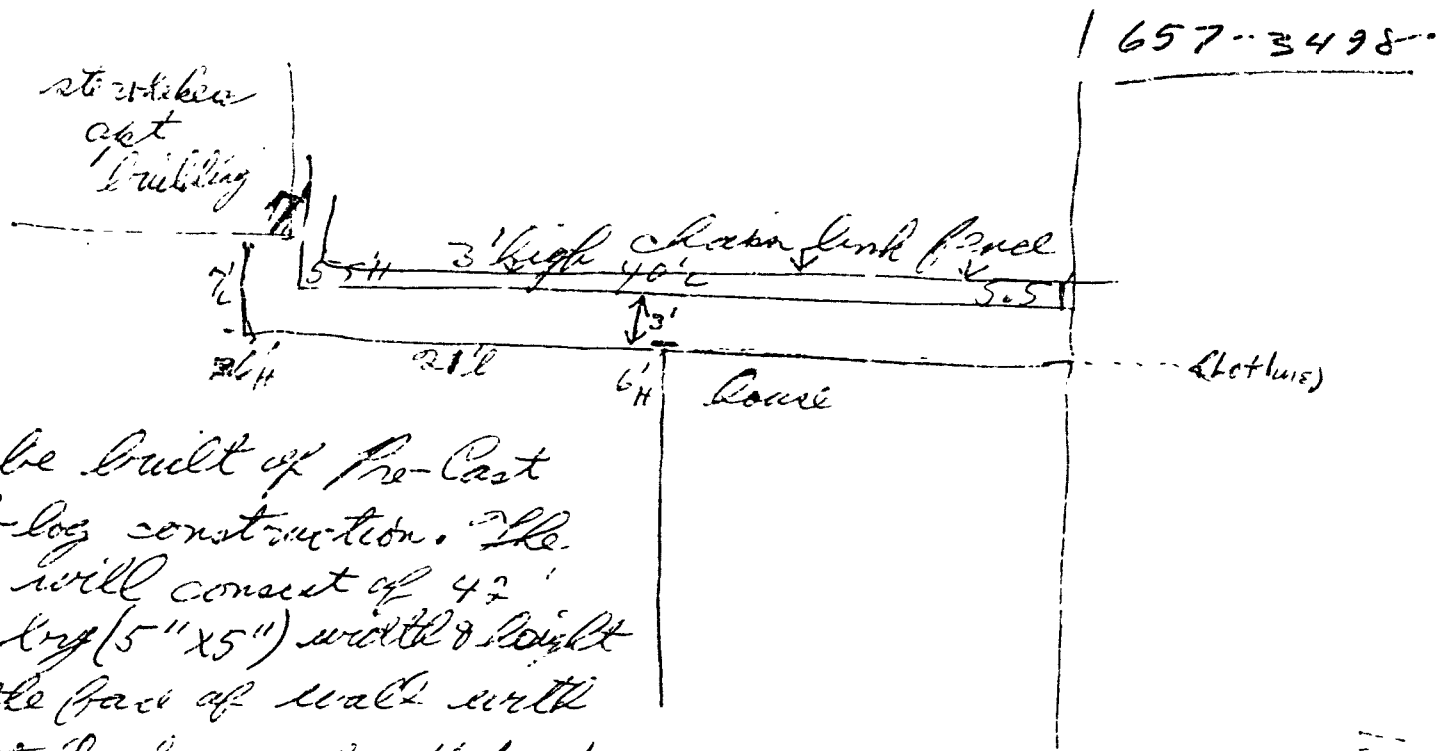 657-3498
apt
building
3' high chain link fence
5.5'H 40'L 5.5'
7'L
3'
6'H 21'L 6'H house
(Lot line)
be built of Pre-Cast
-log construction. The
will consist of 42'
log (5" x5") width & height
the face of wall with